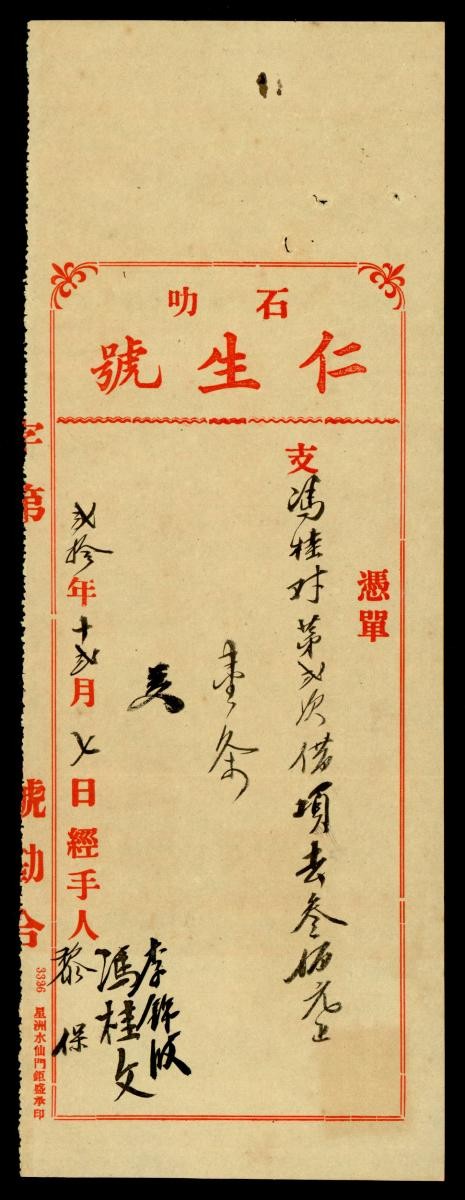 石叻
仁生號
憑單
支馮桂財第弍次借項去叁佰元正
壹条
弍拾年十弍月七日經手人
李錦
馮桂文
黎保
字第 號勘合
3336 星洲水仙門鉅盛承印